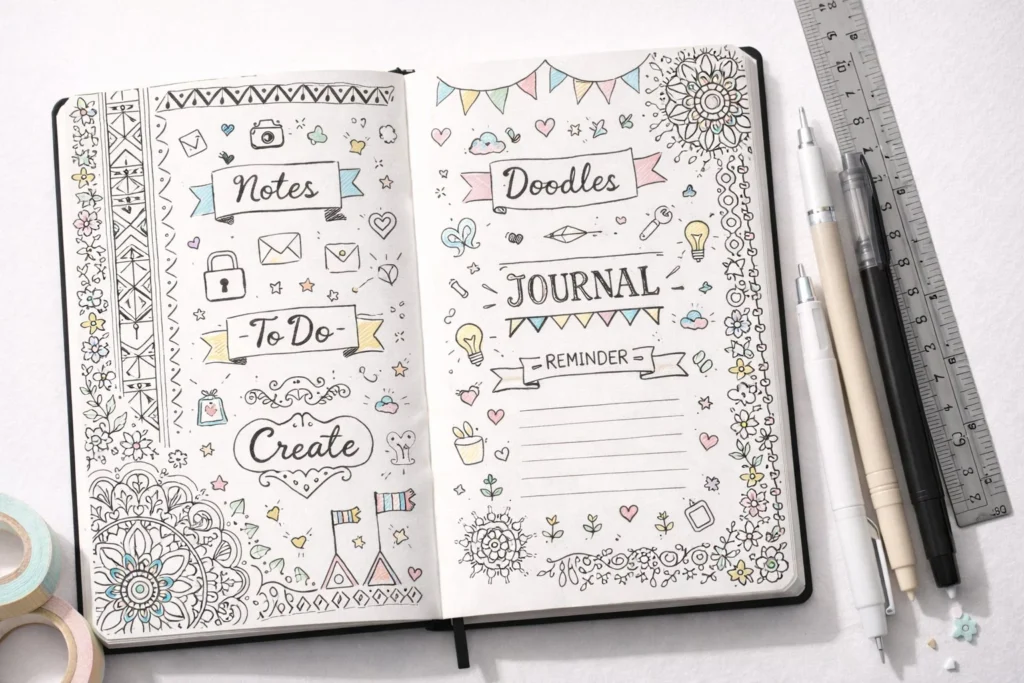 Notes
-To Do-
Create
Doodles
JOURNAL -
- REMINDER -